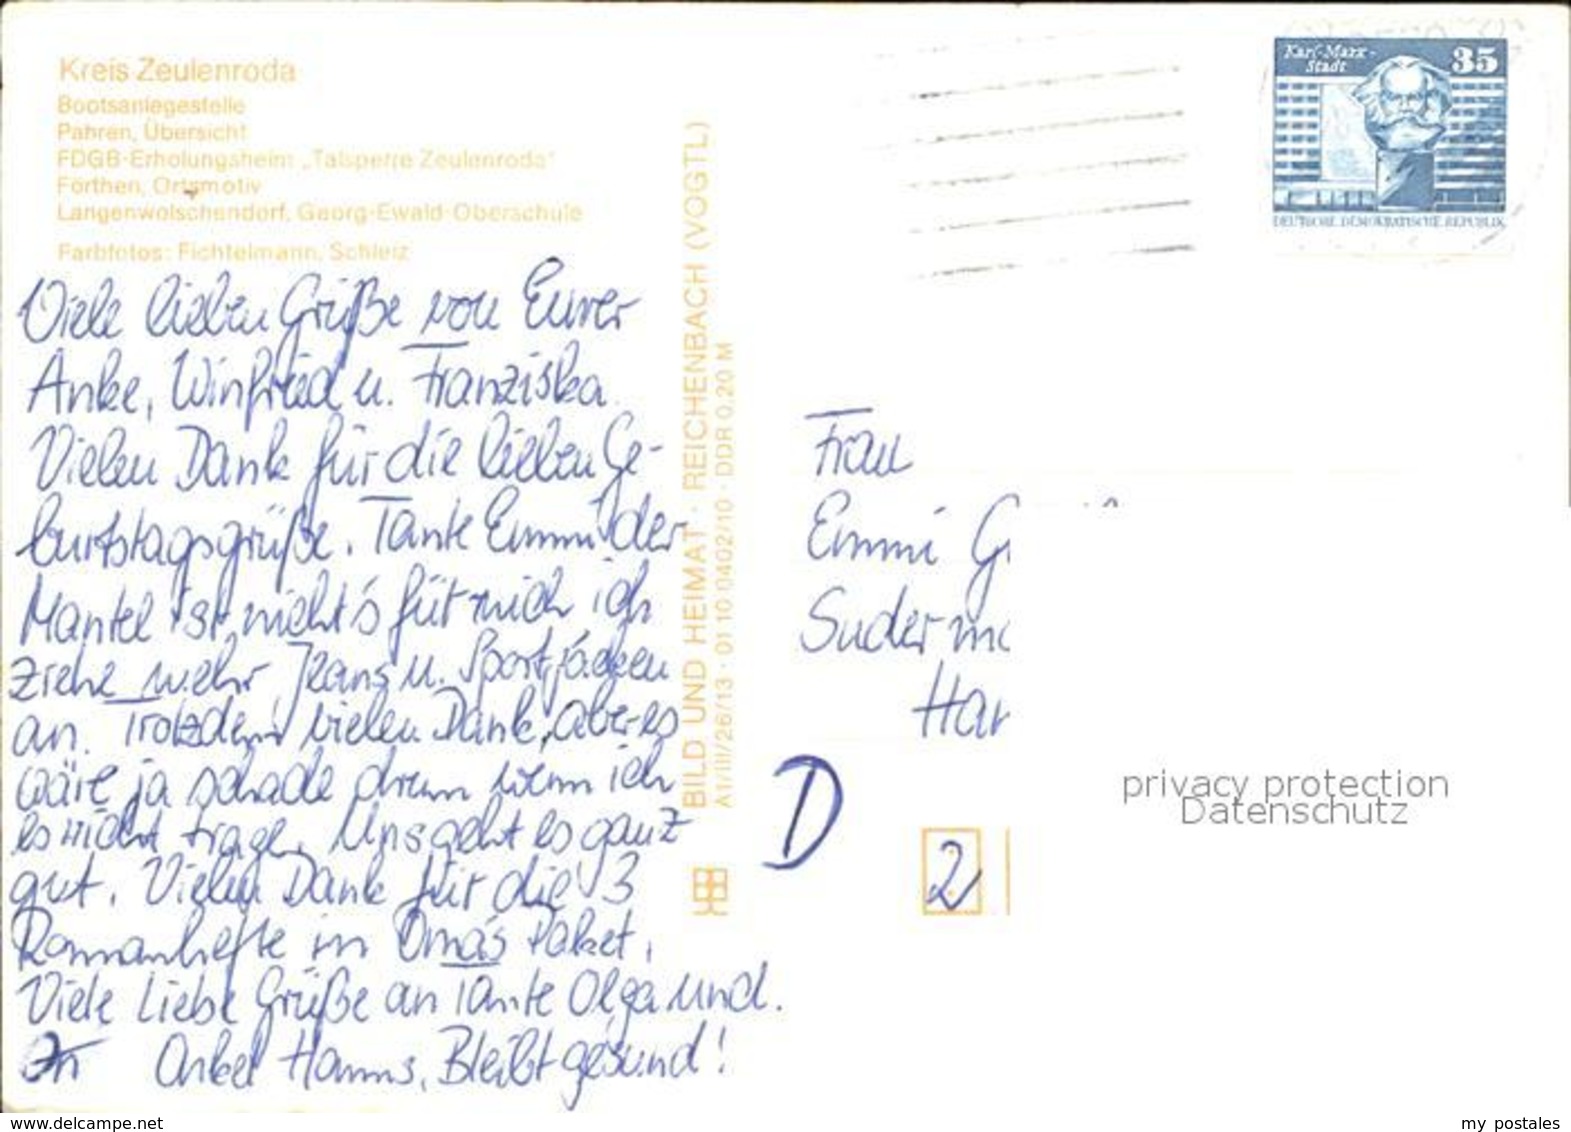 Kreis Zeulenroda
Bootsanlegestelle
Pahren, Übersicht
FDGB-Erholungsheim „Talsperre Zeulenroda“
Förthen, Ortsmotiv
Langenwolschendorf, Georg-Ewald-Oberschule
Farbfotos: Fichtelmann, Schleiz
Viele lieben Grüße von Eurer
Anke, Winfried u. Franziska.
Vielen Dank für die lieben Ge-
burtstagsgrüße. Tante Emmi der
Mantel ist nicht's für mich ich
ziehe mehr Jeans u. Sportjacken
an. Trotzdem vielen Dank, aber es
wäre ja schade drum wenn ich
es nicht trage. Uns geht es ganz
gut. Vielen Dank für die 3
Romanhefte in Omas Paket.
Viele Liebe Grüße an Tante Olga und.
Onkel Hanns, Bleibt gesund!
BILD UND HEIMAT · REICHENBACH (VOGTL)
A1/III/26/13 · 01 10 0402/10 · DDR 0,20 M
Karl-Marx-
Stadt
35
DEUTSCHE DEMOKRATISCHE REPUBLIK
Frau
Emmi G
Suderm
Har
D
2
privacy protection
Datenschutz
www.delcampe.net
my postales